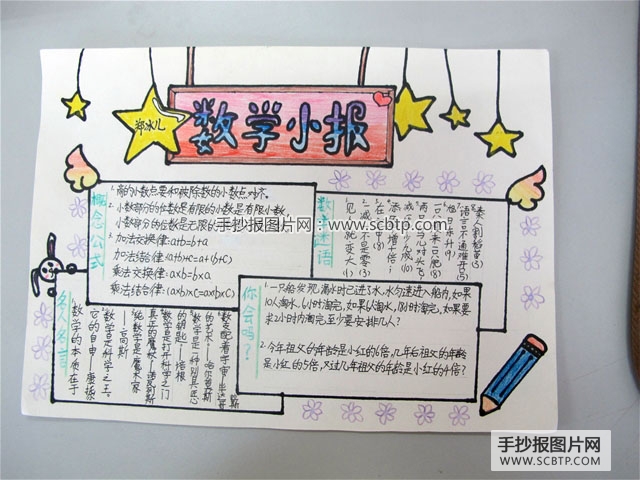 数学小报
郑冰儿
概念公式
1. 商的小数点要和被除数的小数点对齐。
2. 小数部分的位数是有限的小数是有限小数,
小数部分的位数是无限的
3. 加法交换律:a+b=b+a
加法结合律:(a+b)+c=a+(b+c)
乘法交换律:axb=bxa
乘法结合律:(axb)xc=ax(bxc)
手抄报图片网:www.scbtp.com
数
谜语
秦人割稻苗(3)
语言不通难开口(5)
旭日东升(9)
一只狗
添一
减
在
见
你会吗?
1. 一只船发现漏水时已进了水,水匀速进入船内,如果
10人淘水,6小时淘完,如果6人淘水,18小时淘完,如果要
求2小时内淘完,至少要安排几人?
2. 今年祖父的年龄是小红的6倍,几年后祖父的年龄
是小红的5倍,又过几年祖父的年龄是小红的4倍?
名人名言
数支配着宇宙
的艺术——哈尔莫斯
数学是一种别具匠心
的钥匙——培根
数学是打开科学之门
真正的魔杖——诺瓦利斯
纯数学是魔术家
——高斯
数学是科学之王。
它的自由——康扥尔
数学的本质在于
手抄报图片网
WWW.SCBTP.COM